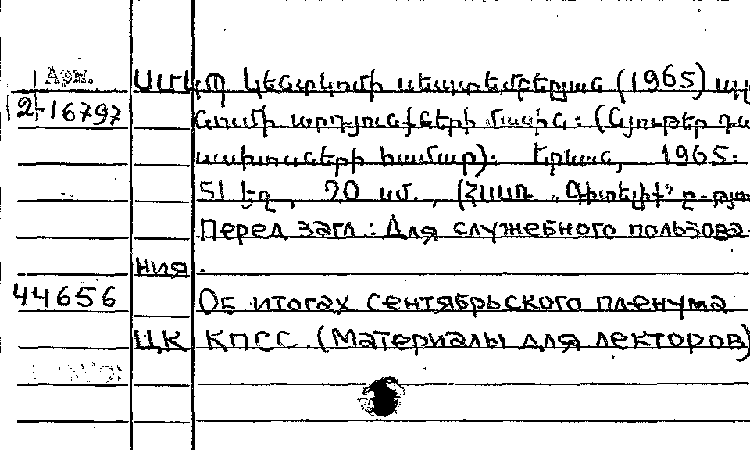 Арм.
ՍՄԿՊ Կենտկոմի սեպտեմբերյան (1965) պլ
2-16797
նումի արդյունքների մասին: (Նյութեր դա
սախոսների համար): Երևան, 1965.
51 էջ, 20 սմ., (ՀՍՍՌ „Գիտելիք"
Перед загл.: Для служебного пользова-
ния.
44656
Об итогах сентябрьского пленума
ЦК КПСС. (Материалы для лекторов)